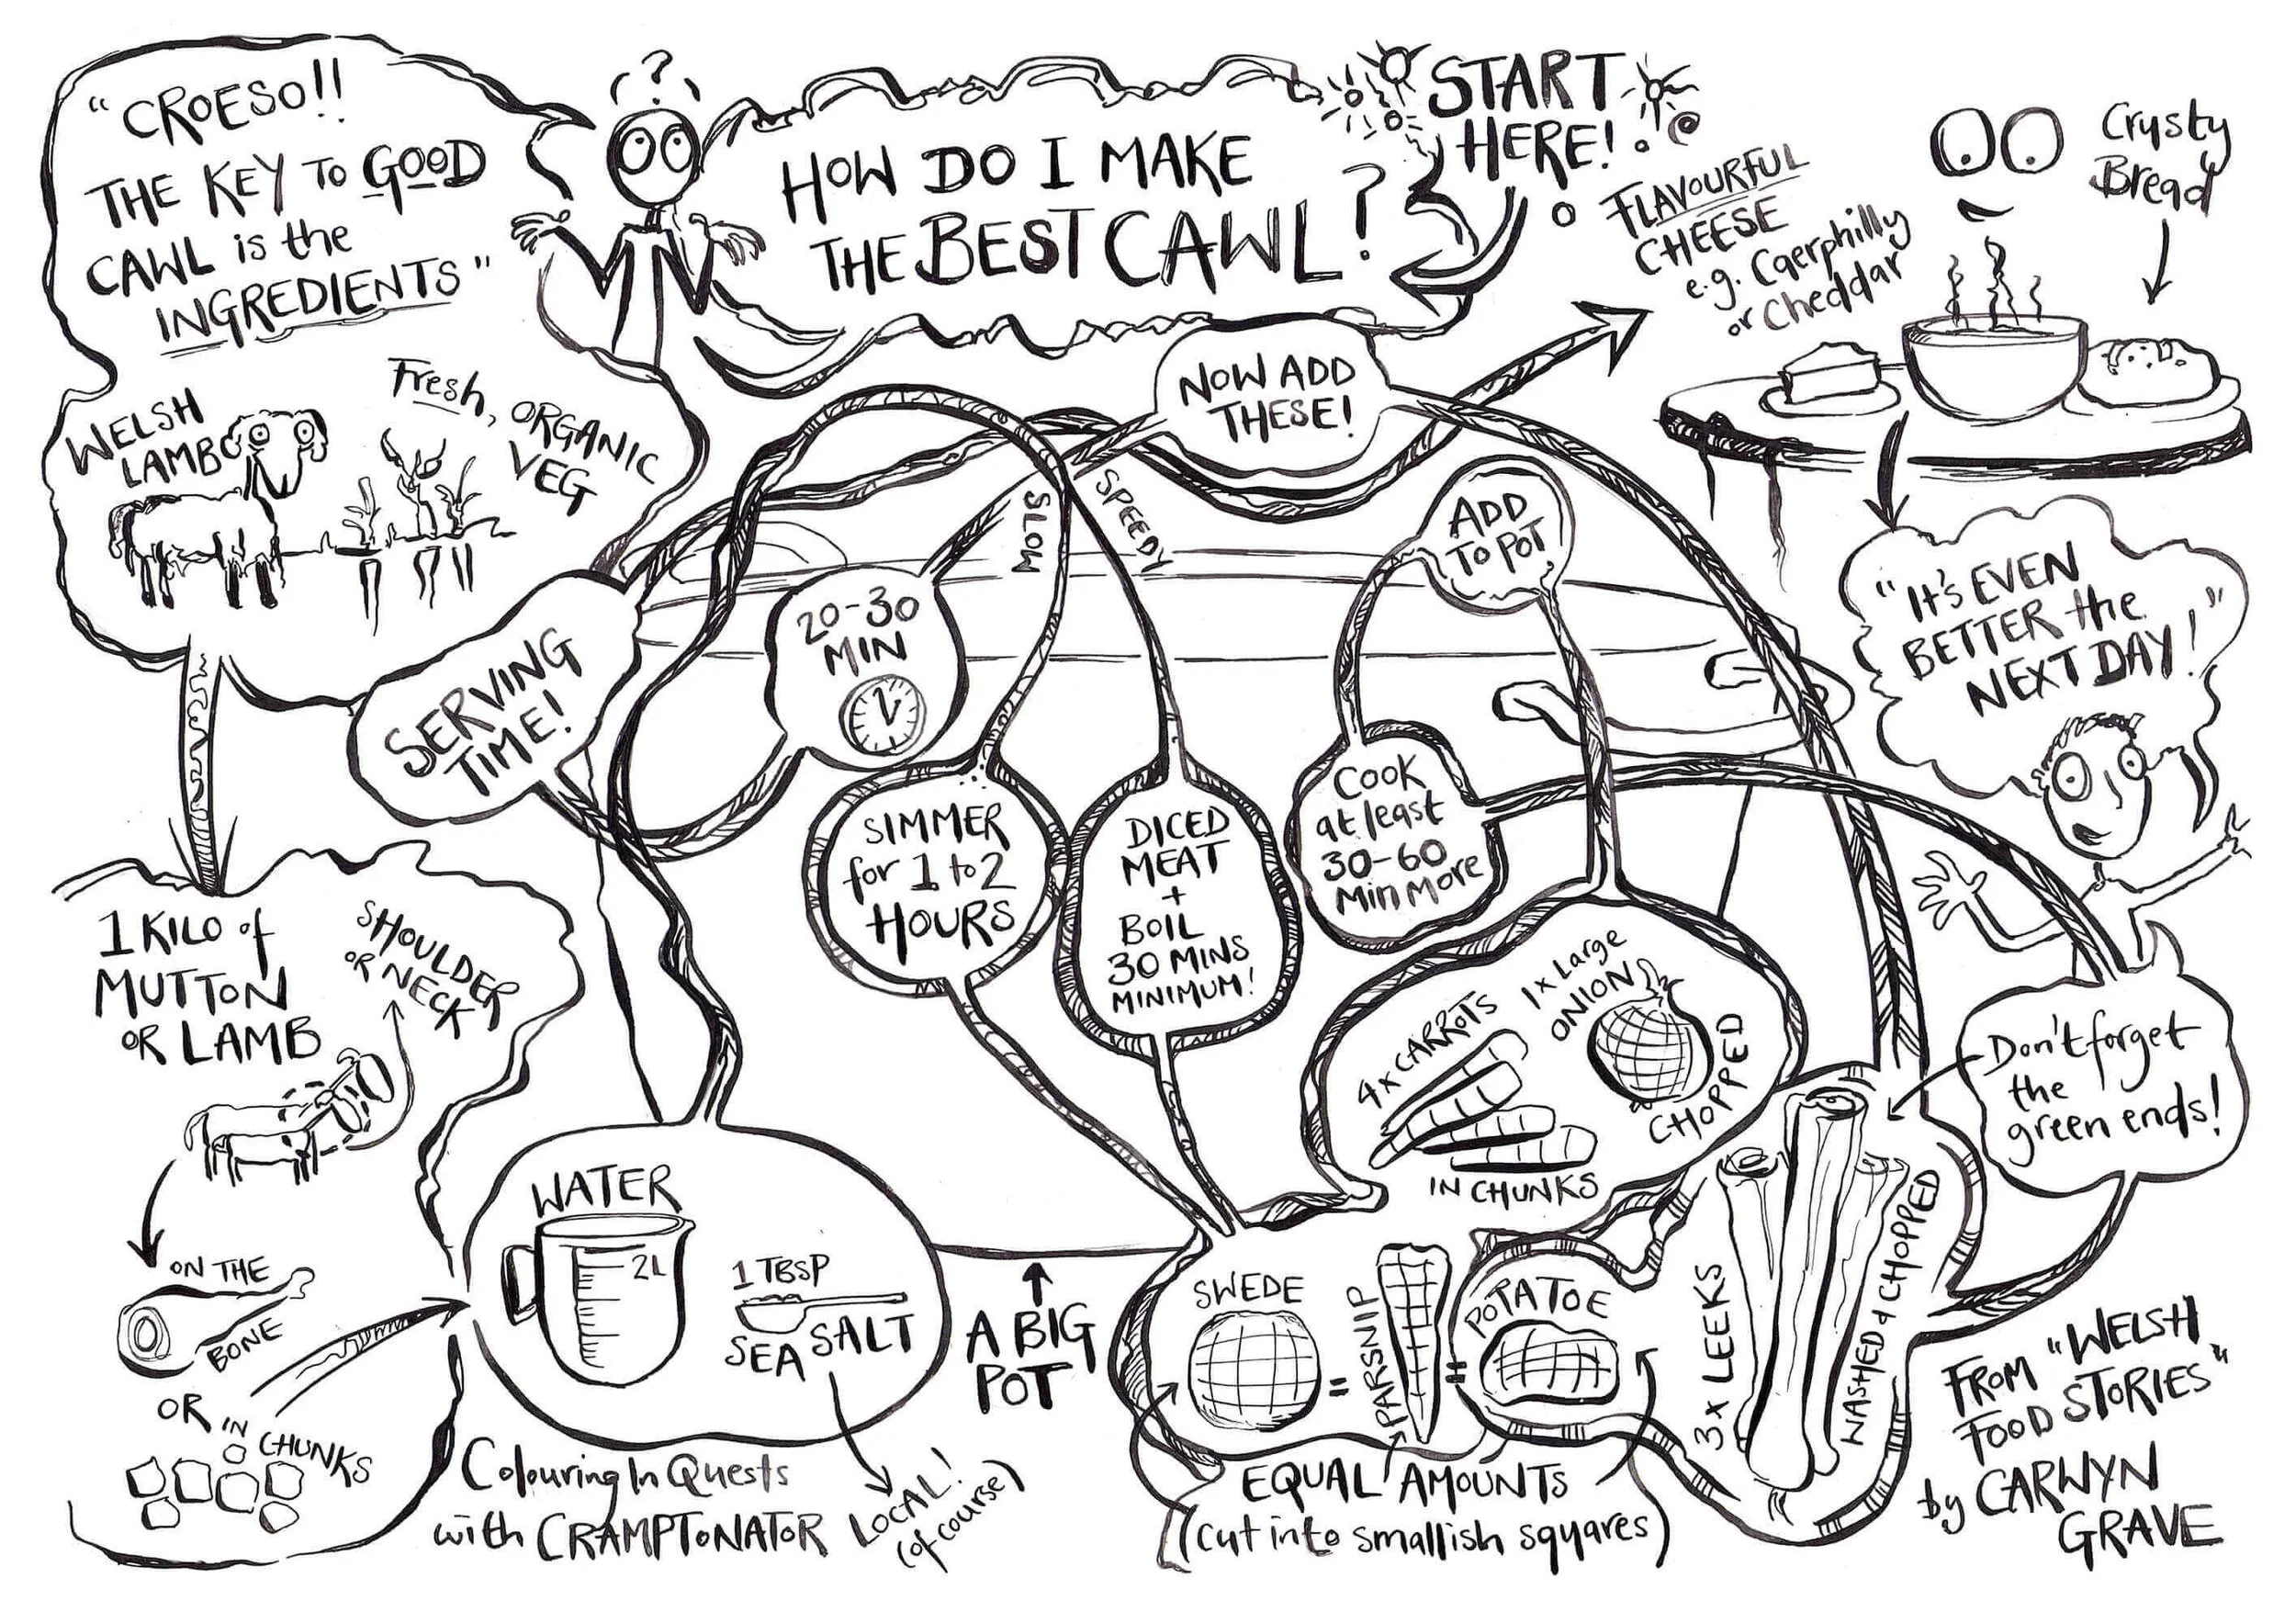 START
HERE!
HOW DO I MAKE
THE BEST CAWL?
?
"CROESO!!
THE KEY TO GOOD
CAWL is the
INGREDIENTS"
WELSH
LAMB
Fresh,
ORGANIC
VEG
1 KILO of
MUTTON
OR LAMB
SHOULDER
OR NECK
ON THE
BONE
OR IN
CHUNKS
WATER
2L
1 TBSP
SEA SALT
LOCAL!
(of course)
A BIG
POT
SLOW
SPEEDY
SIMMER
for 1 to 2
HOURS
DICED
MEAT
+
BOIL
30 MINS
MINIMUM!
SWEDE
=
PARSNIP
=
POTATOE
EQUAL AMOUNTS
(cut into smallish squares)
4x CARROTS
IN CHUNKS
1x Large
ONION
CHOPPED
ADD
TO POT
COOK
at least
30-60
Min More
Don't forget
the
green ends!
3x LEEKS
WASHED & CHOPPED
NOW ADD
THESE!
20-30
MIN
SERVING
TIME!
FLAVOURFUL
CHEESE
e.g. Caerphilly
or Cheddar
Crusty
Bread
"It's EVEN
BETTER the
NEXT DAY!"
Colouring In Quests
with CRAMPTONATOR
FROM "WELSH
FOOD STORIES"
by CARWYN
GRAVE